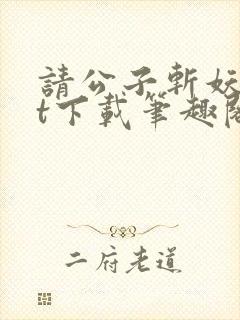 請公子斬妖
t下載筆趣閣
二府老道